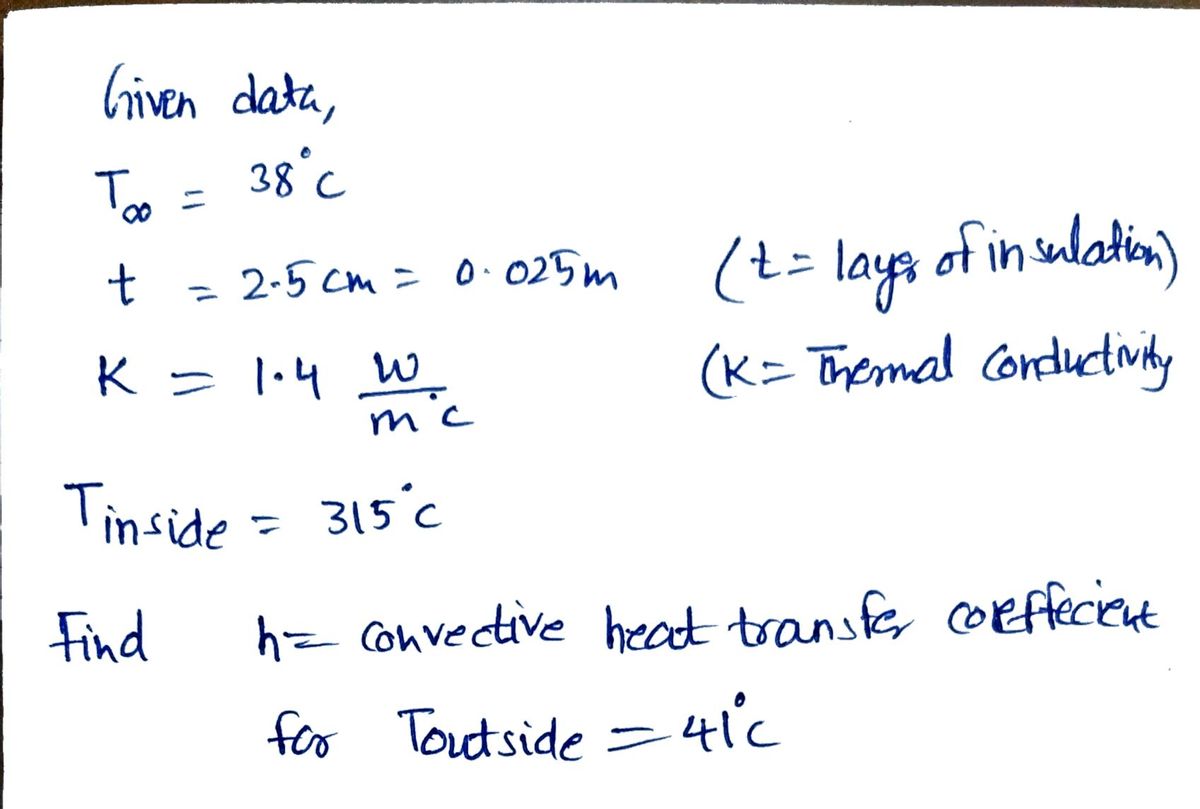 Given data,
T∞ = 38°C
t = 2.5 cm = 0.025m (t = layer of insulation)
K = 1.4 W/m°C (K = Thermal Conductivity
Tinside = 315°C
Find h = Convective heat transfer coeffecient
for Toutside = 41°C